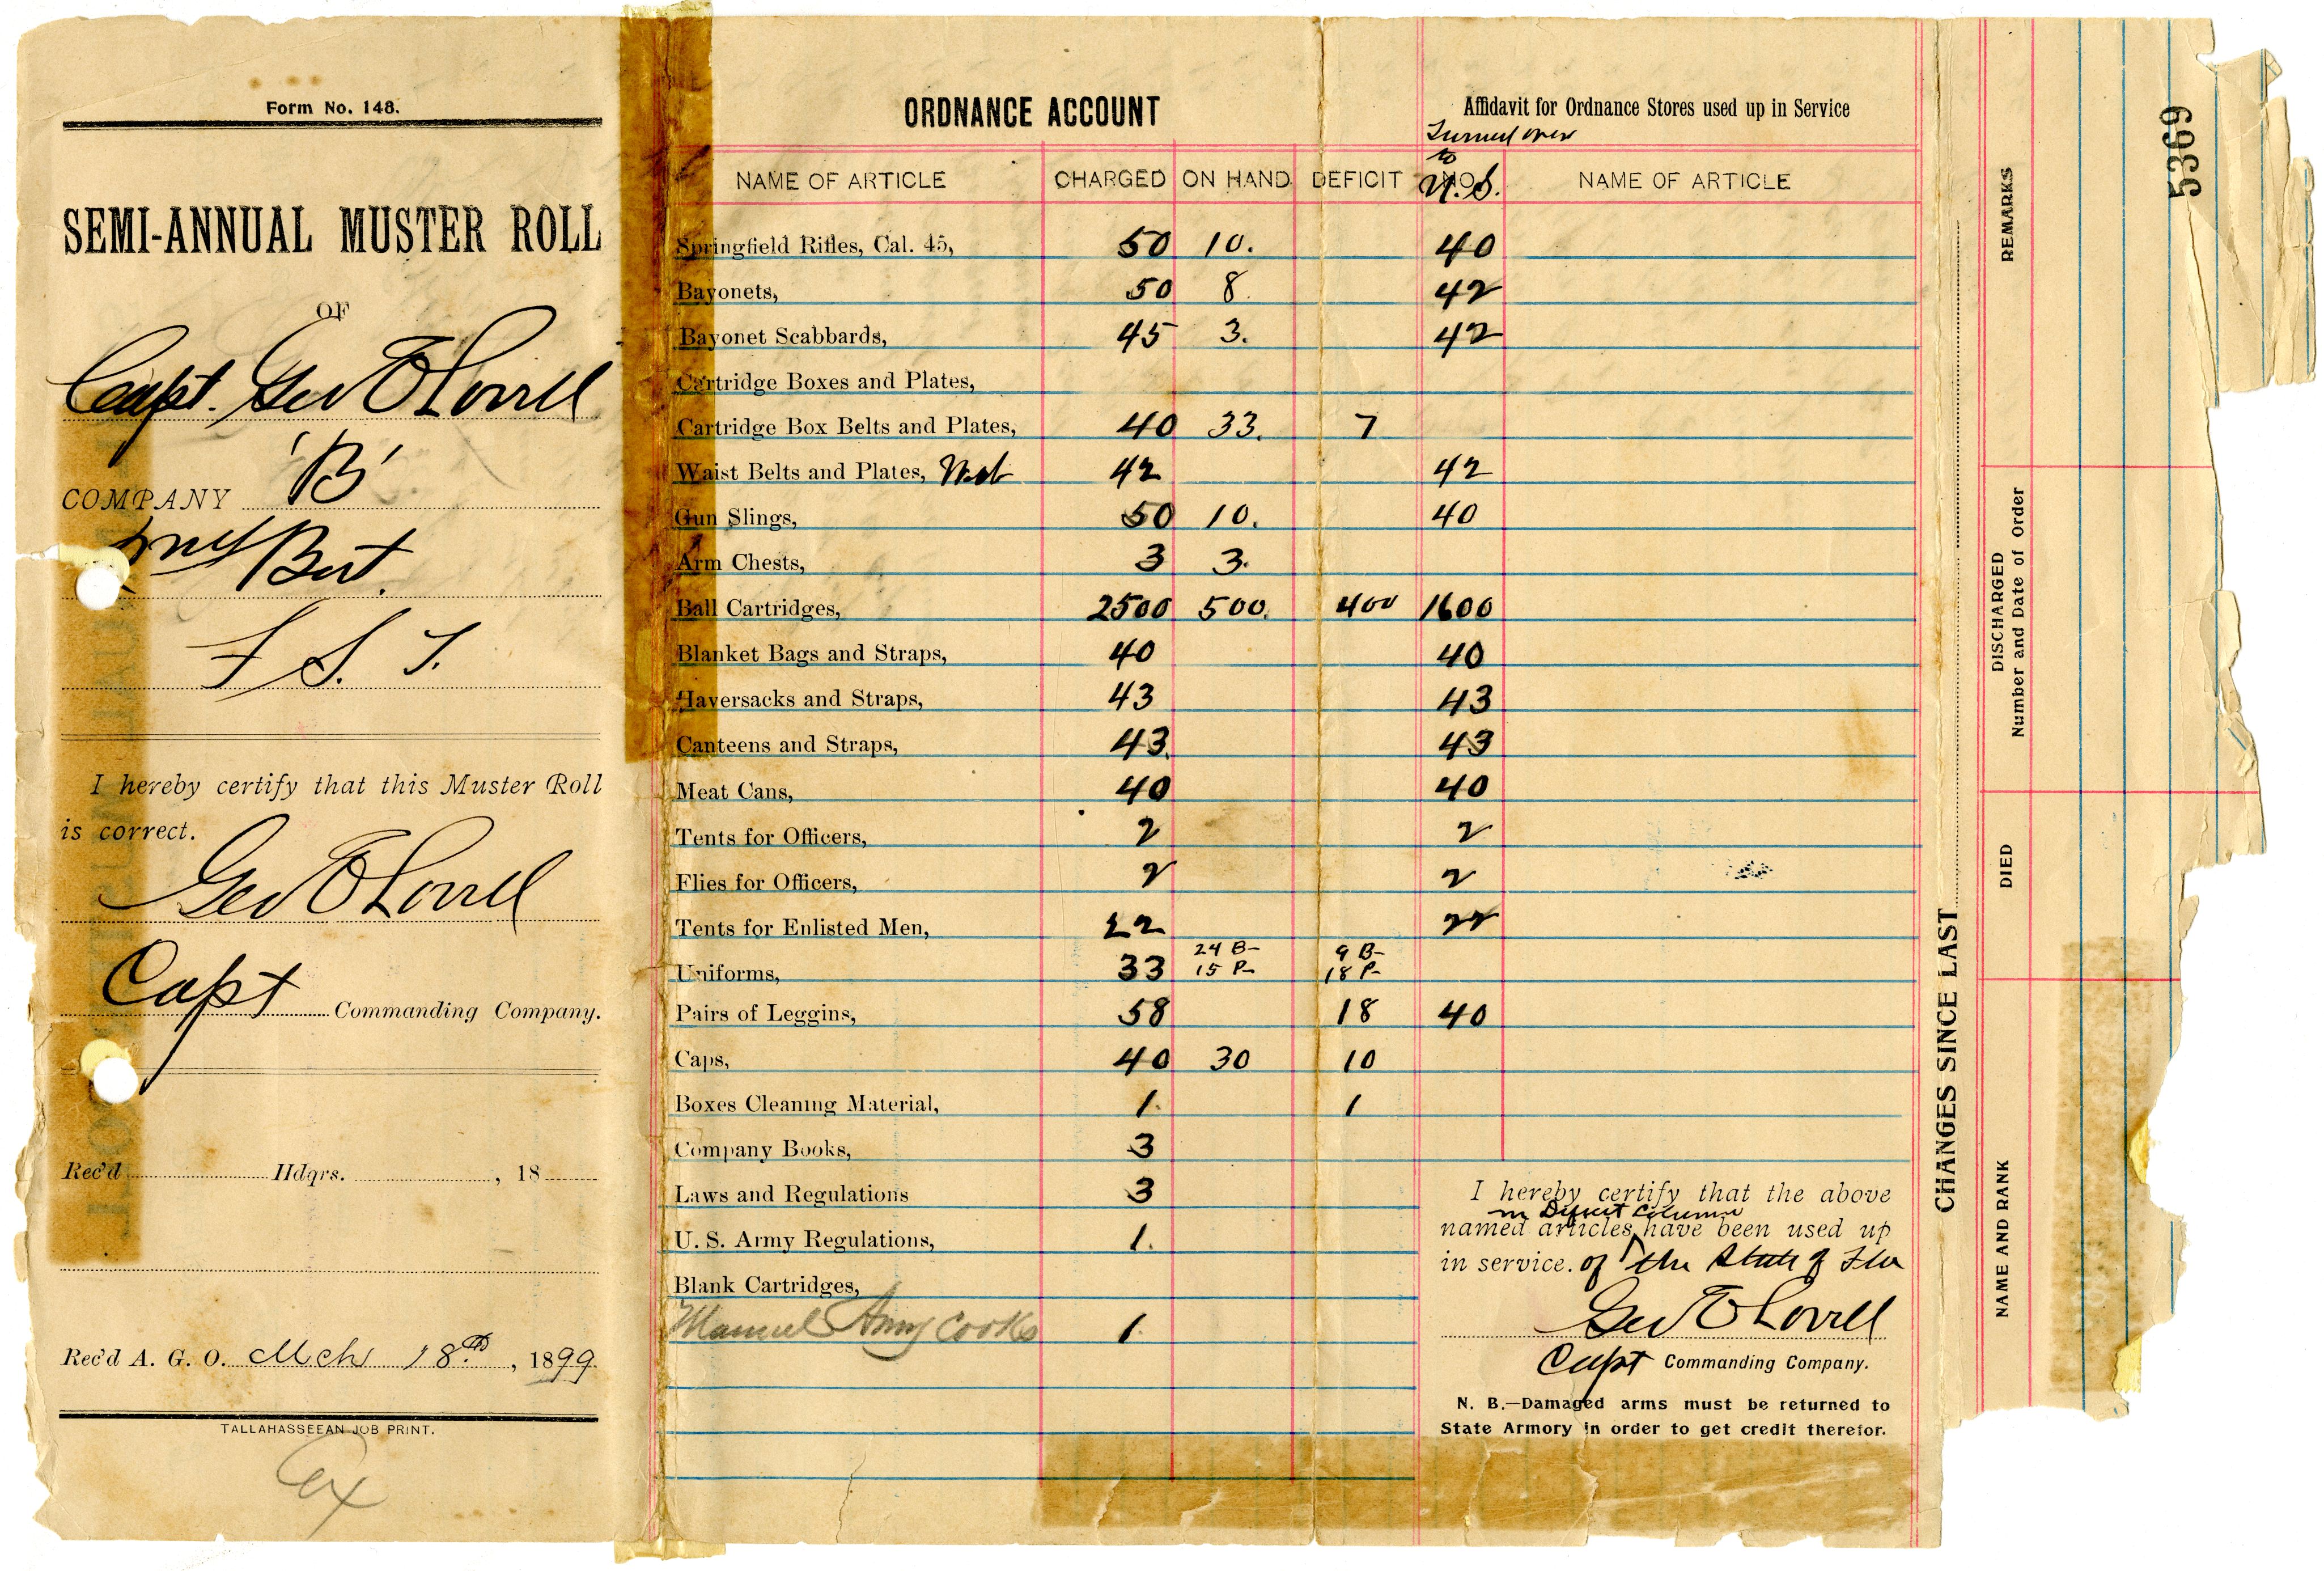 Form No. 148.
SEMI-ANNUAL MUSTER ROLL
OF
Capt. Geo E Lovell
COMPANY 'B'
Bat.
F S. T.
I hereby certify that this Muster Roll
is correct.
Geo E Lovell
Capt Commanding Company.
Rec'd Hdqrs. , 18
Rec'd A. G. O. Mch 18th, 1899
TALLAHASSEEAN JOB PRINT.
ORDNANCE ACCOUNT
NAME OF ARTICLE CHARGED ON HAND DEFICIT
Springfield Rifles, Cal. 45, 50 10. 40
Bayonets, 50 8 42
Bayonet Scabbards, 45 3. 42
Cartridge Boxes and Plates,
Cartridge Box Belts and Plates, 40 33. 7
Waist Belts and Plates, Web 42 42
Gun Slings, 50 10. 40
Arm Chests, 3 3.
Ball Cartridges, 2500 500. 400 1600
Blanket Bags and Straps, 40 40
Haversacks and Straps, 43 43
Canteens and Straps, 43. 43
Meat Cans, 40 40
Tents for Officers, 2 2
Flies for Officers, 2 2
Tents for Enlisted Men, 22 22
24 B- 9 B-
Uniforms, 33 15 P- 18 P-
Pairs of Leggins, 58 18 40
Caps, 40 30 10
Boxes Cleaning Material, 1. 1
Company Books, 3
Laws and Regulations 3
U. S. Army Regulations, 1.
Blank Cartridges,
Manuel Army Cooks 1
Affidavit for Ordnance Stores used up in Service
Turned over
to
U. S.
NO. NAME OF ARTICLE
I hereby certify that the above
in Deficit Column
named articles have been used up
in service. of the State of Fla
Geo E Lovell
Capt Commanding Company.
N. B.—Damaged arms must be returned to
State Armory in order to get credit therefor.
CHANGES SINCE LAST
NAME AND RANK
DIED
DISCHARGED
Number and Date of Order
REMARKS
5369